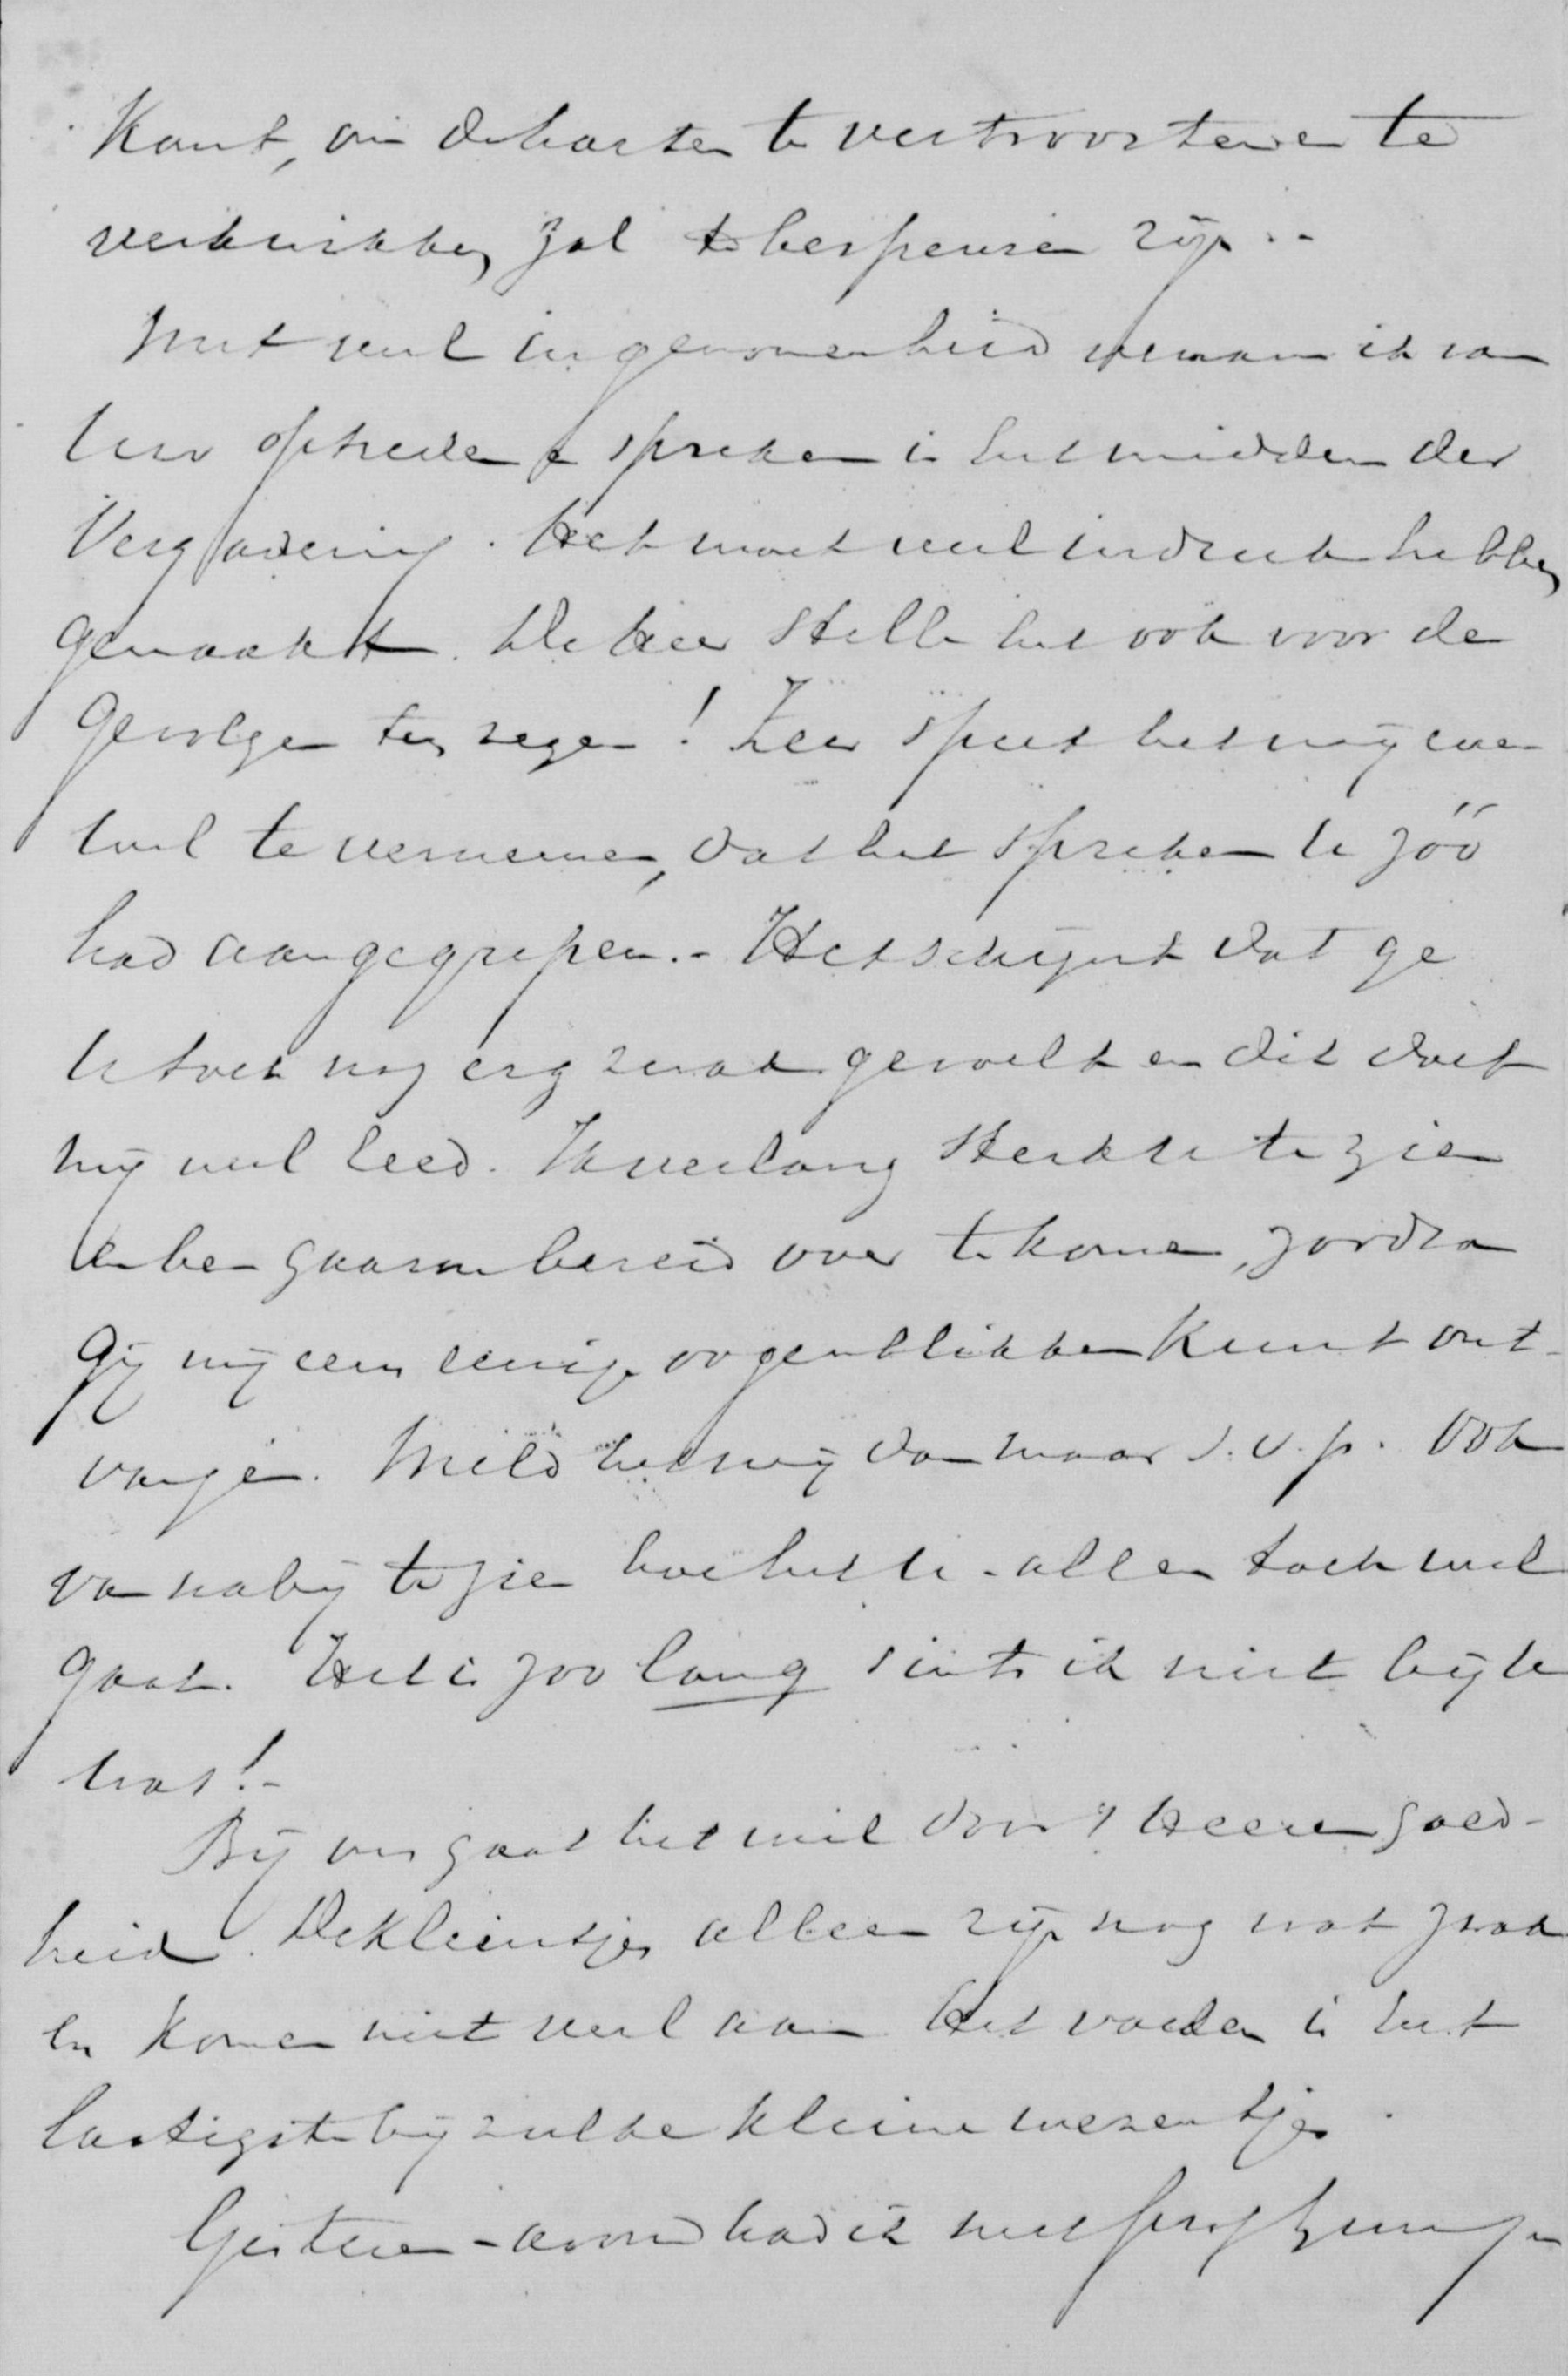 Kant, om de harten te vertroosten en te
verkwikken, zal te bespeuren zijn..
Met veel ingenomenheid vernam ik van
Uw optreden & spreken in het midden der
Vergadering. Het moet veel indruk hebben
gemaakt. De Heer stelle het ook voor de
gevolgen ten zegen! Zeer speet het mij even
wel te vernemen, dat het spreken U zóó
had aangegrepen. - Het schijnt dat ge
U toch nog erg zwak gevoelt en dit doet
mij veel leed. Ik verlang sterk U te zien
en ben gaarne bereid over te komen, zoodra
Gij mij een eenige oogenblikken kunt ont-
vangen. Meld het mij dan maar s.v.p. Ook
van nabij te zien hoe het U - allen toch wel
gaat. Het is zoo lang sints ik niet bij U
was! -
Bij ons gaat het wel door 's Heeren goed-
heid. De kleintjes alleen zijn nog wat zwak
en komen niet veel aan. Het voeden is het
lastigste bij zulke kleine wezentjes.
Gisteren-avond had ik met prof